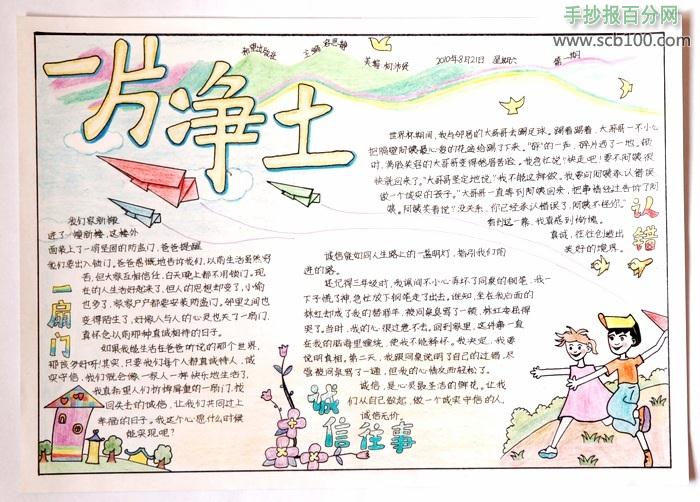 手抄报百分网
www.scb100.com
希望出版社
主编
美编
2010年8月21日 星期六 第一期
一片净土
世界杯期间,我与邻居的大哥哥去踢足球。踢着踢着,大哥哥一不小心
把隔壁阿姨最心爱的花盆给踢了下来。“砰”的一声,碎片洒了一地。顿
时,满脸笑容的大哥哥变得愁眉苦脸。我急忙说:“快走吧!要不阿姨很
快就回来了。”大哥哥坚定地说:“我不能这样做。我要向阿姨承认错误
做一个诚实的孩子。”大哥哥一直等到阿姨回来,把事情经过告诉了阿
姨。阿姨笑着说:“没关系,你已经承认错误了,阿姨不怪你。”
看到这一幕,我真感到惭愧。
真诚,往往创造出
美好的境界。
认错
我们家新搬
进了一幢新楼,这楼外
面装上了一扇坚固的防盗门,爸爸提醒
我们要出入锁门。爸爸感慨地告诉我们,以前生活虽然穷
苦,但大家互相信任,白天晚上都不用锁门。现
在的人生活好起来了,但人的思想却变了,小偷
也多了,家家户户都要安装防盗门。邻里之间也
变得陌生了,好像人与人的心灵也关了一扇门,
真怀念以前那种真诚相待的日子。
如果我能生活在爸爸所说的那个世界,
那该多好呀!其实,只要我们每个人都真诚待人,诚
实守信,我们就会像一家人一样快乐地生活了,
我真希望人们拆掉厚重的一扇门,找
回失去的诚信,让我们共同过上
幸福的日子。我这个心愿什么时候
能实现呢?
一扇门
诚信就如同人生路上的一盏明灯,指引我们前
进的路。
还记得三年级时,我课间不小心弄坏了同桌的钢笔,我一
下子慌了神,急忙放下钢笔走了出去。谁知,坐在我后面的
林红却成了我的替罪羊,被同桌骂了一顿,林红委屈得
哭了。当时,我的心很过意不去。回到家里,这件事一直
在我的脑海里缠绕,使我不能释怀。我决定,我要
说明真相。第二天,我跟同桌说明了自己的过错,尽
管被同桌骂了一通,但我的心情反而轻松了。
诚信,是心灵最圣洁的鲜花,让我
们从自己做起,做一个诚实守信的人。
诚信无价。
诚信往事